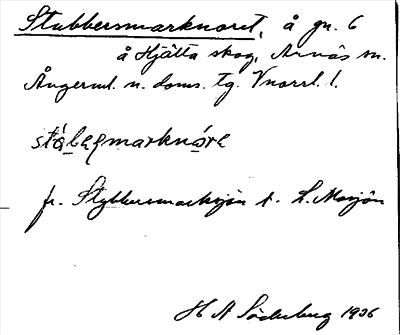 Stubbersmarknoret, å gn. 6
å Hjätta skog, Arnäs sn.
Ångerml. n. doms. tg. Vnorrl. l.
fr. Stybbersmarksjön t. L. Mosjön
H A Söderberg 1936